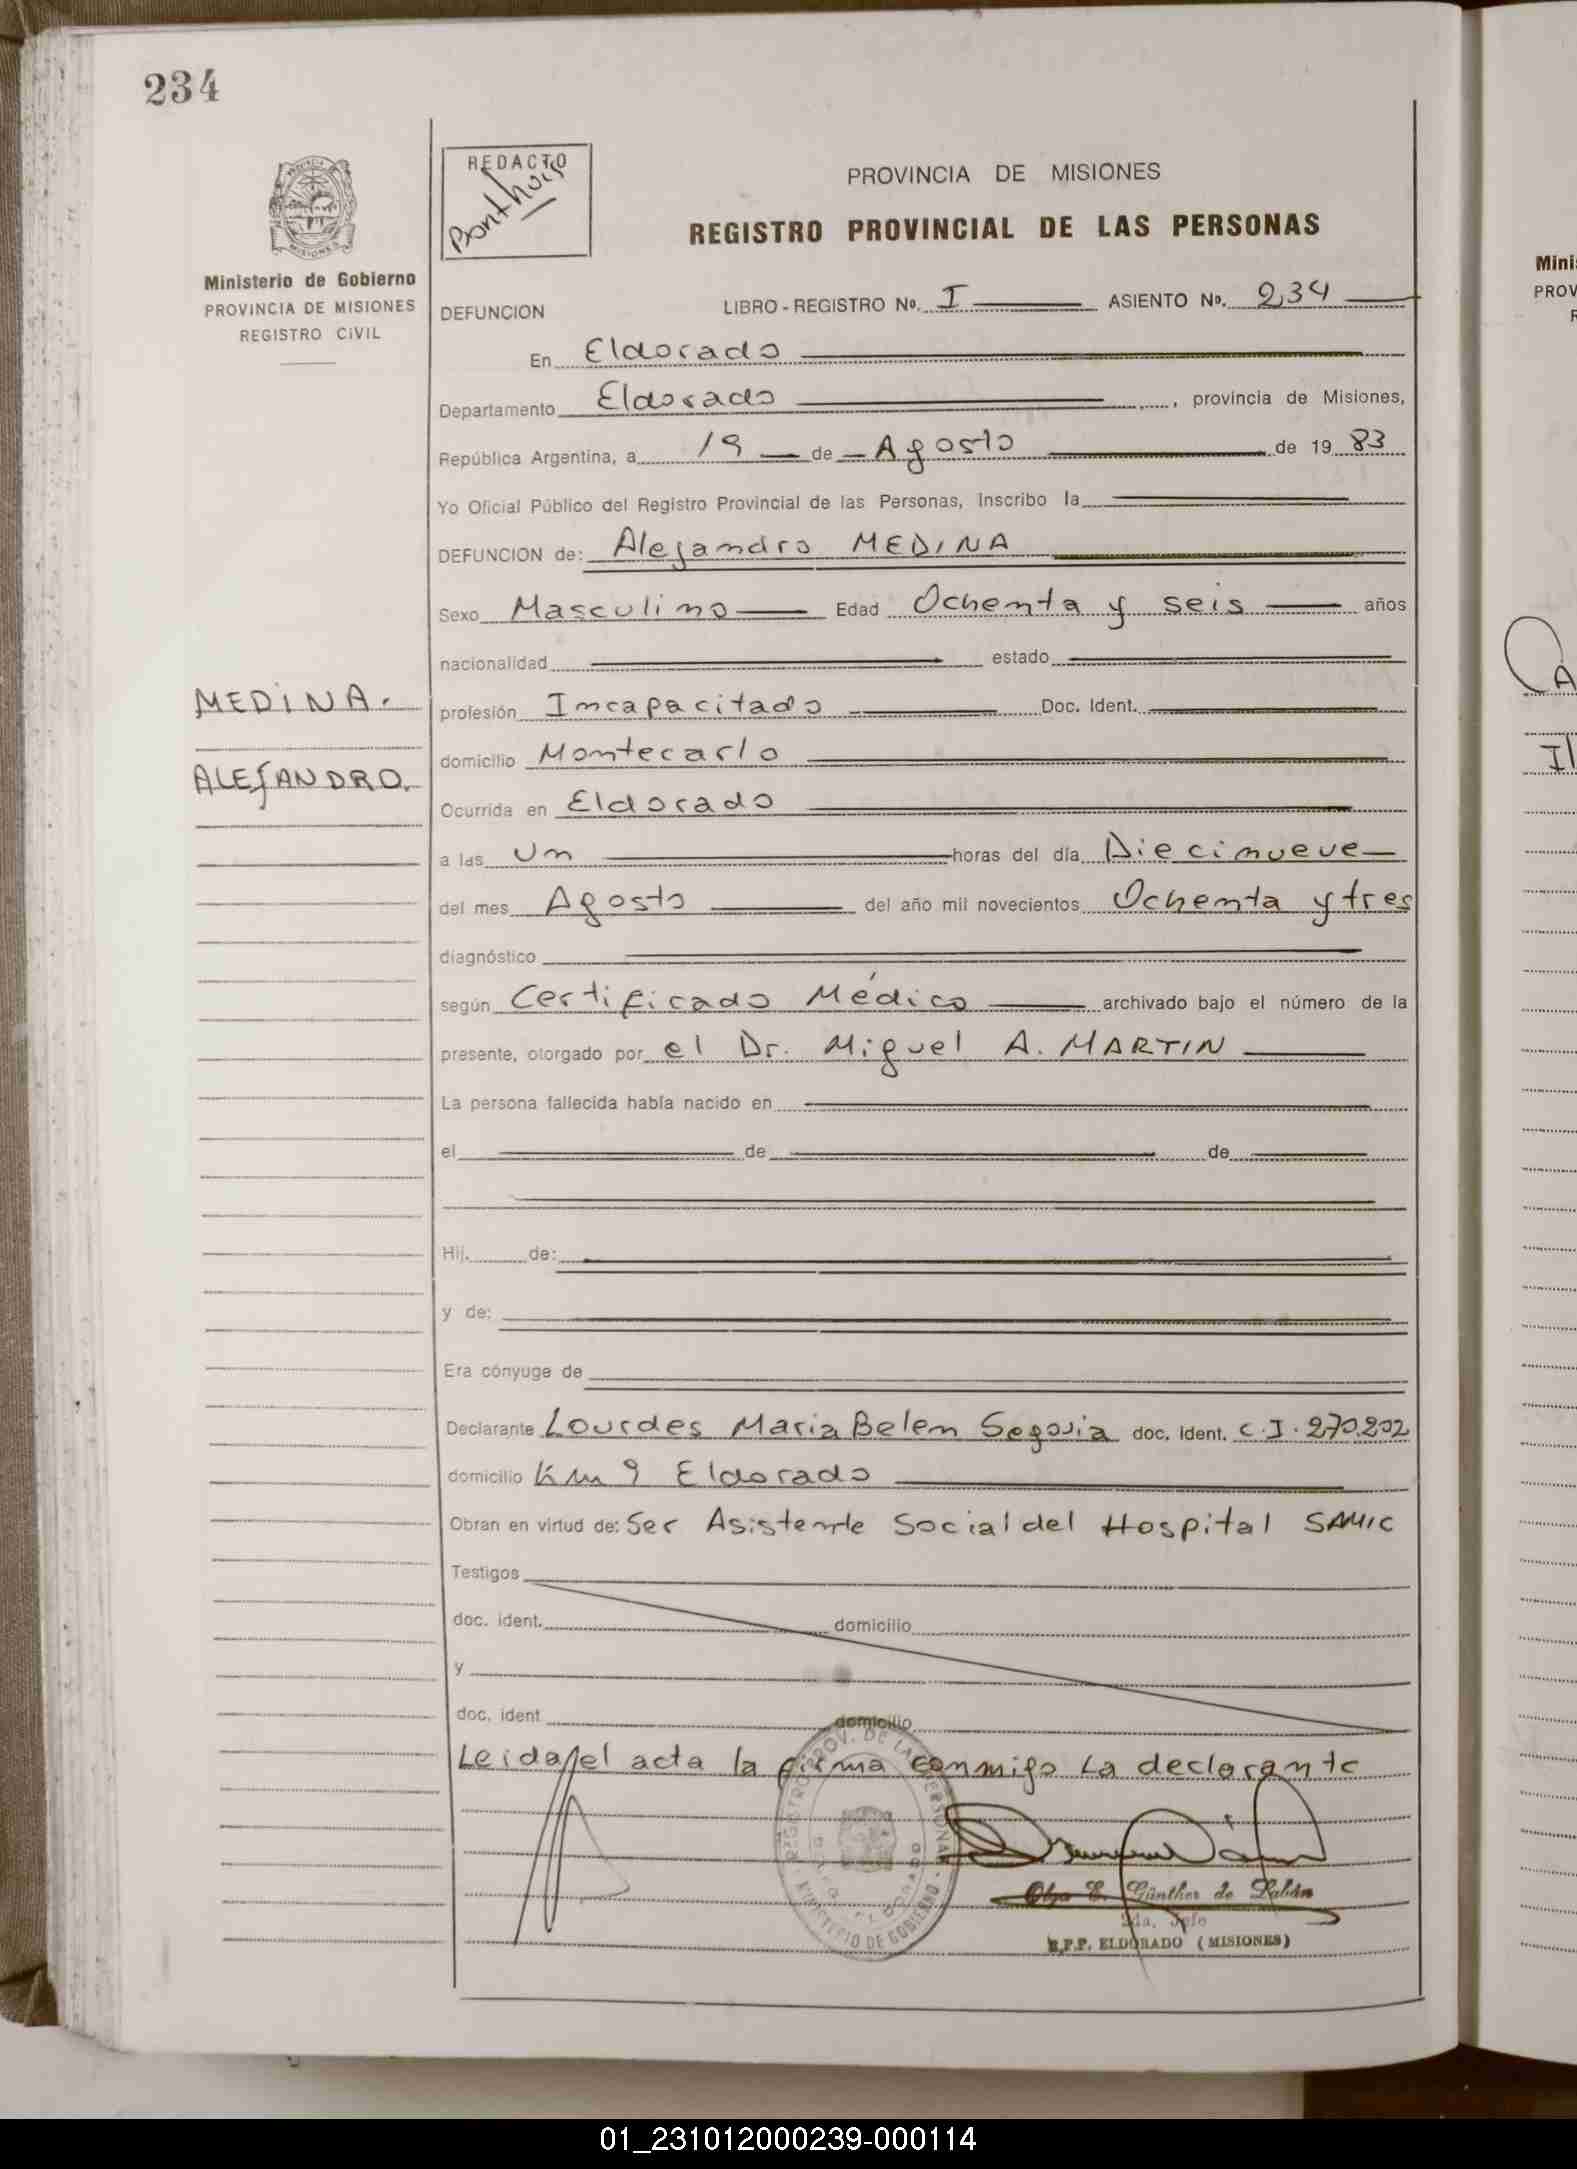 234
REDACTO
PROVINCIA DE MISIONES
REGISTRO PROVINCIAL DE LAS PERSONAS
Ministerio de Gobierno
PROVINCIA DE MISIONES
REGISTRO CIVIL
DEFUNCION LIBRO - REGISTRO Nº. I ASIENTO Nº. 234
En Eldorado
Departamento Eldorado , provincia de Misiones,
República Argentina, a 19 de Agosto de 19 83
Yo Oficial Público del Registro Provincial de las Personas, Inscribo la
DEFUNCION de: Alejandro MEDINA
Sexo Masculino Edad Ochenta y seis años
nacionalidad estado
MEDINA.
profesión Incapacitado Doc. Ident.
domicilio Montecarlo
ALEJANDRO.
Ocurrida en Eldorado
a las Un horas del día Diecinueve
del mes Agosto del año mil novecientos Ochenta y tres
diagnóstico
según Certificado Médico archivado bajo el número de la
presente, otorgado por el Dr. Miguel A. MARTIN
La persona fallecida había nacido en
el de de
Hij. de:
y de:
Era cónyuge de
Declarante Lourdes Maria Belen Segovia doc. Ident. C.I. 270.202
domicilio Km 9 Eldorado
Obran en virtud de: Ser Asistente Social del Hospital SAMIC
Testigos
doc. ident. domicilio
y
doc. ident domicilio
Leida el acta la firma conmigo La declarante
REGISTRO PROV. DE LAS PERSONAS
MINISTERIO DE GOBIERNO
Olga E. Günther de Labán
2da. Jefe
R.P.P. ELDORADO (MISIONES)
Minis
PROV
R
A
Il
01_231012000239-000114